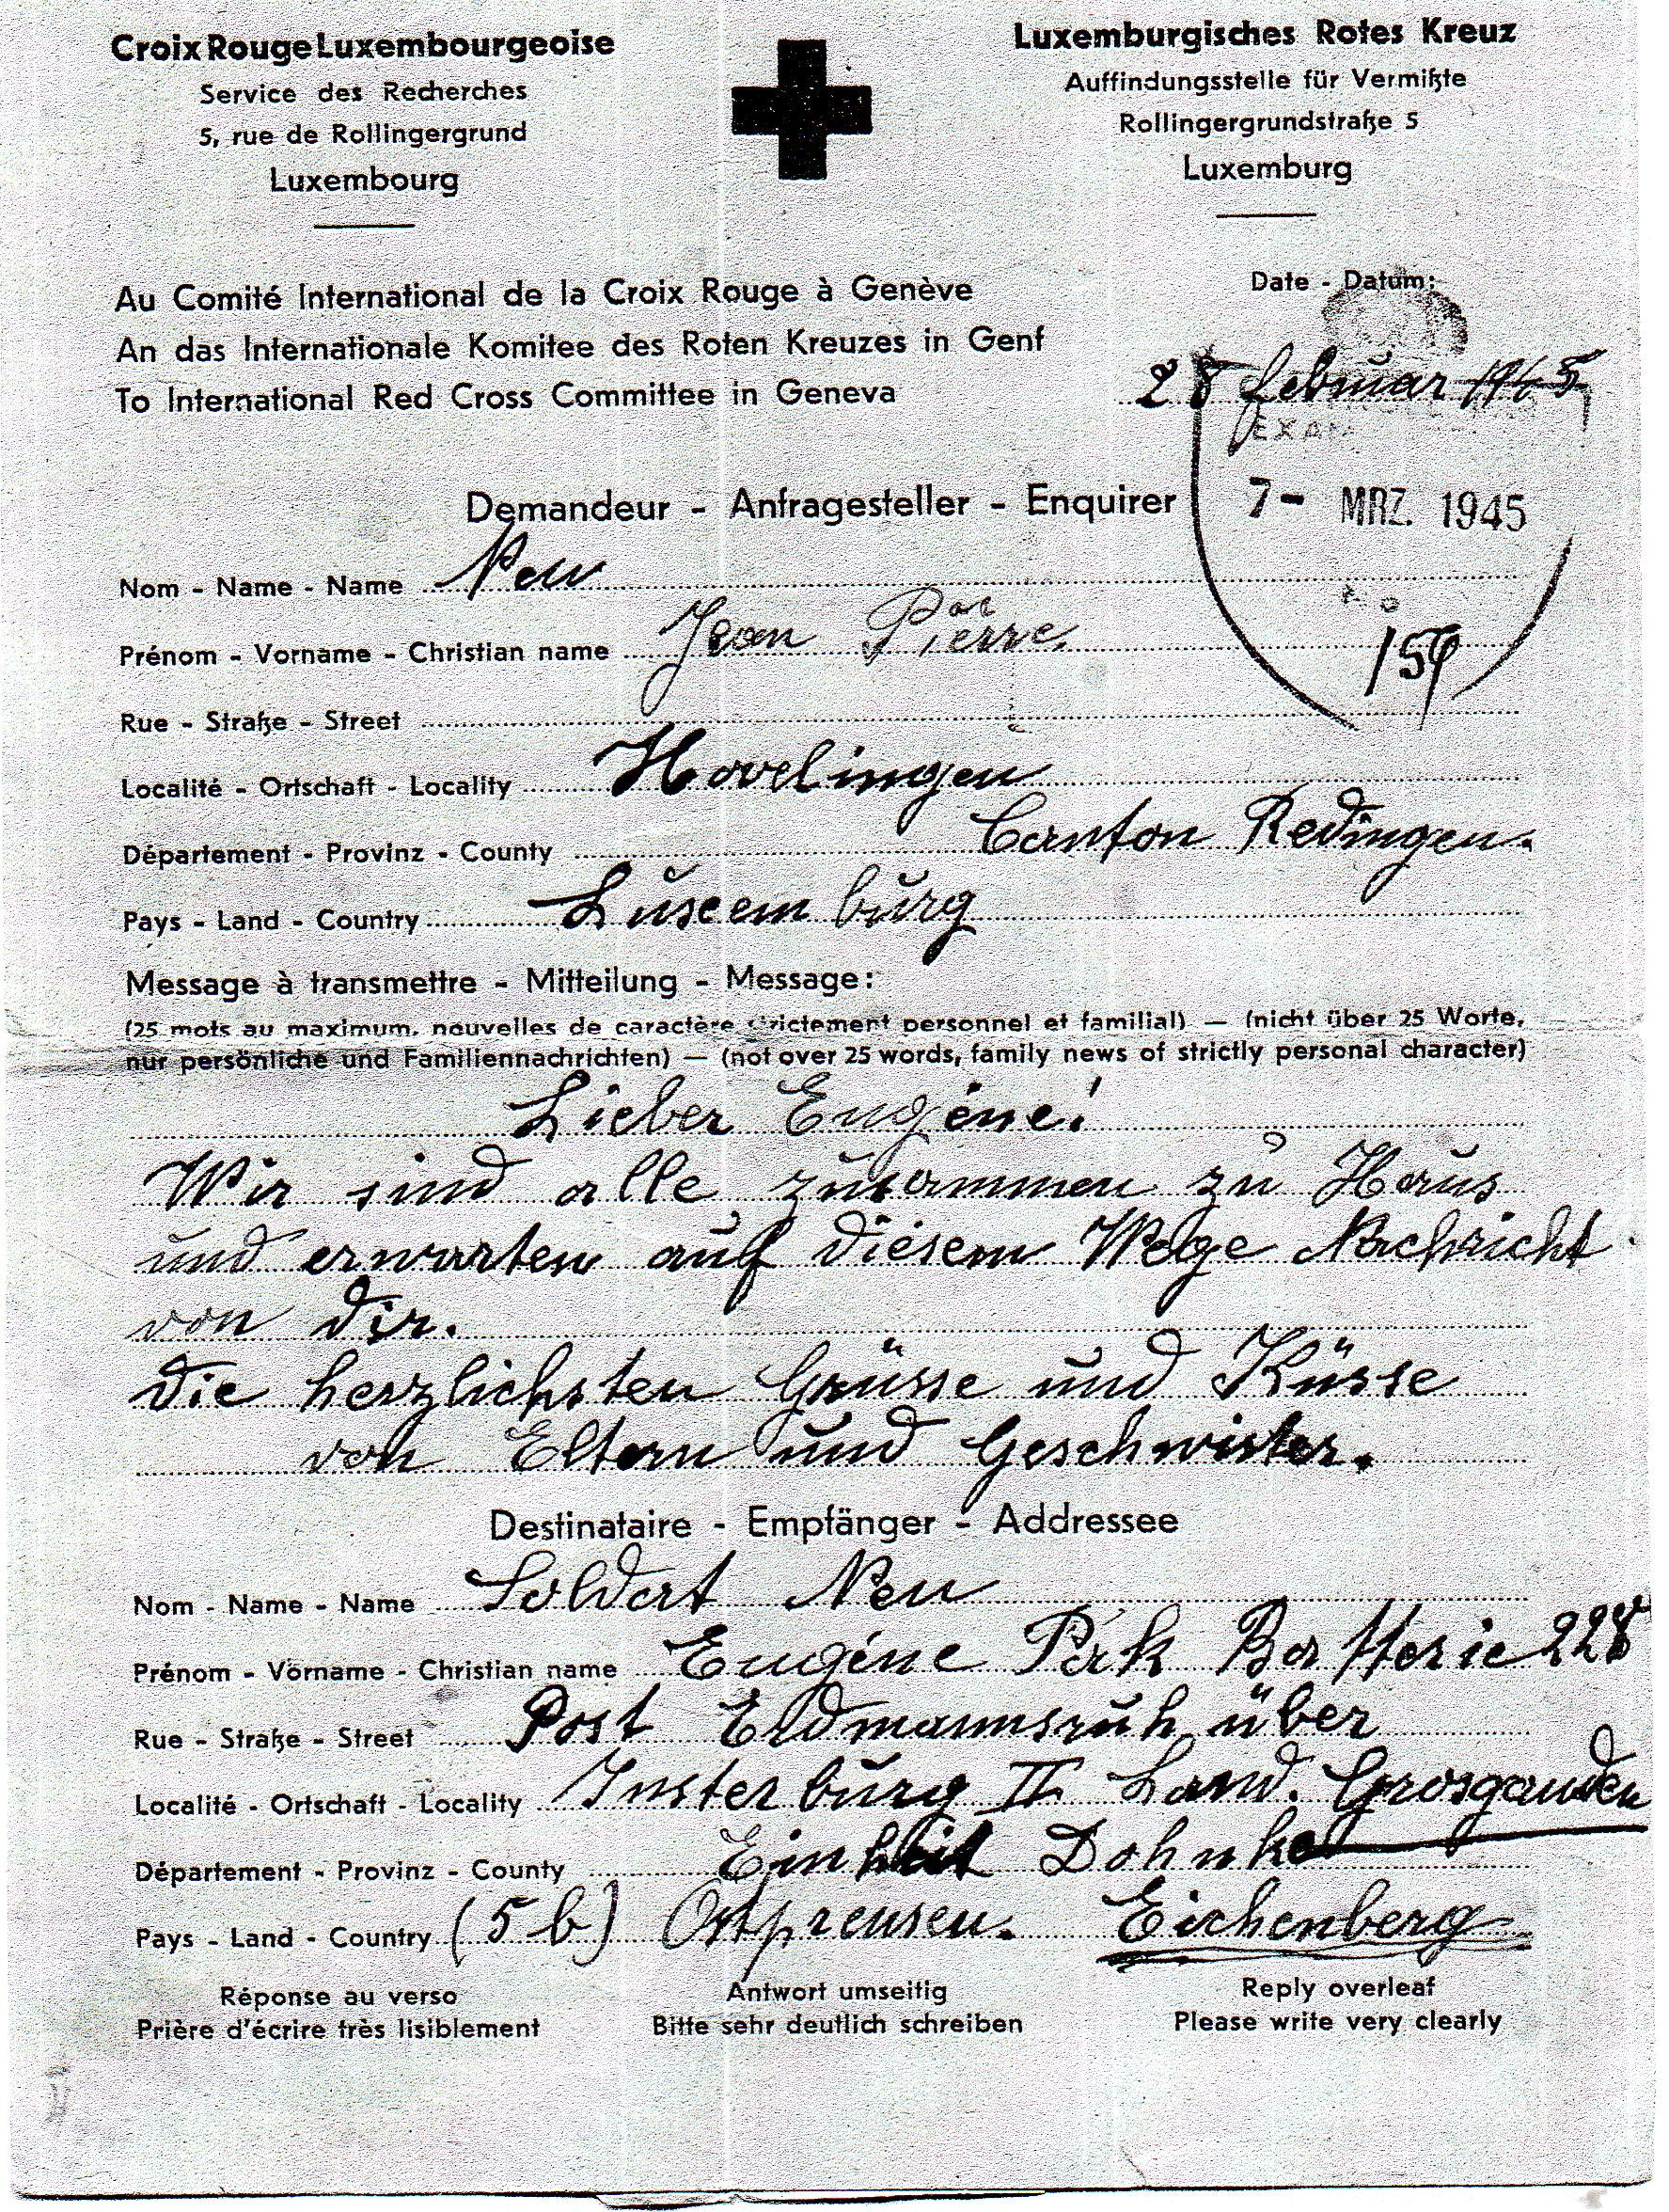 Croix Rouge Luxembourgeoise
Service des Recherches
5, rue de Rollingergrund
Luxembourg
Luxemburgisches Rotes Kreuz
Auffindungsstelle für Vermißte
Rollingergrundstraße 5
Luxemburg
Au Comité International de la Croix Rouge à Genève
An das Internationale Komitee des Roten Kreuzes in Genf
To International Red Cross Committee in Geneva
Date - Datum:
28 februar 1945
7 - MRZ. 1945
Demandeur - Anfragesteller - Enquirer
Nom - Name - Name Neu
Prénom - Vorname - Christian name Jean Pierre
Rue - Straße - Street
Localité - Ortschaft - Locality Hovelingen
Département - Provinz - County Canton Redingen.
Pays - Land - Country Luxemburg
Message à transmettre - Mitteilung - Message:
(25 mots au maximum, nouvelles de caractère strictement personnel et familial) — (nicht über 25 Worte,
nur persönliche und Familiennachrichten) — (not over 25 words, family news of strictly personal character)
Lieber Eugéne!
Wir sind alle zusammen zu Haus
und erwarten auf diesem Wege Nachricht
von dir.
Die herzlichsten Grüsse und Küsse
von Eltern und Geschwister.
Destinataire - Empfänger - Addressee
Nom - Name - Name Soldat Neu
Prénom - Vorname - Christian name Eugéne Park Batterie 228
Rue - Straße - Street Post Erdmannsruh über
Localité - Ortschaft - Locality Insterburg II Land.
Département - Provinz - County Einheit
Pays - Land - Country (5 b) Ostpreusen. Eichenberg
Réponse au verso
Prière d'écrire très lisiblement
Antwort umseitig
Bitte sehr deutlich schreiben
Reply overleaf
Please write very clearly